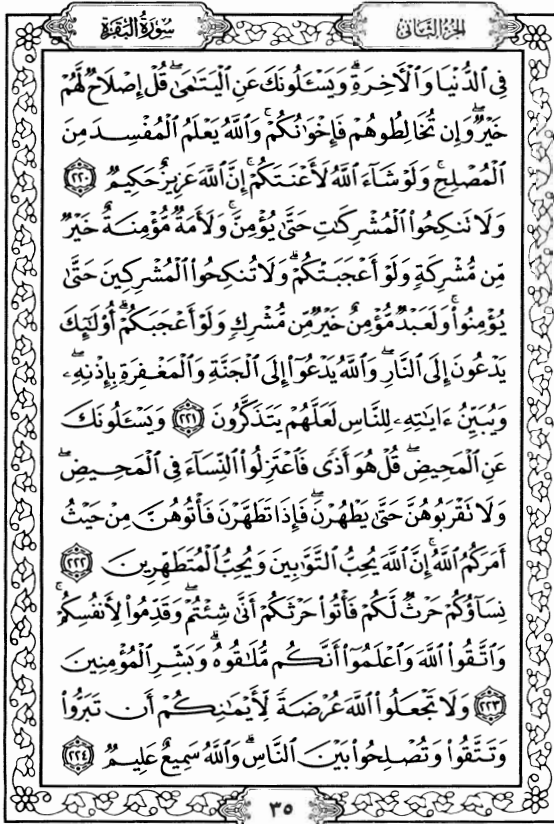 سُورَةُ البَقَرَةِ
الجُزءُ الثَّانِي
فِي ٱلدُّنْيَا وَٱلْـَٔاخِرَةِۗ وَيَسْـَٔلُونَكَ عَنِ ٱلْيَتَـٰمَىٰۖ قُلْ إِصْلَاحٌ لَّهُمْ
خَيْرٌۖ وَإِن تُخَالِطُوهُمْ فَإِخْوَٰنُكُمْۚ وَٱللَّهُ يَعْلَمُ ٱلْمُفْسِدَ مِنَ
ٱلْمُصْلِحِۚ وَلَوْ شَآءَ ٱللَّهُ لَأَعْنَتَكُمْۚ إِنَّ ٱللَّهَ عَزِيزٌ حَكِيمٌ ٢٢٠
وَلَا تَنكِحُوا۟ ٱلْمُشْرِكَـٰتِ حَتَّىٰ يُؤْمِنَّۚ وَلَأَمَةٌ مُّؤْمِنَةٌ خَيْرٌ
مِّن مُّشْرِكَةٍ وَلَوْ أَعْجَبَتْكُمْۗ وَلَا تُنكِحُوا۟ ٱلْمُشْرِكِينَ حَتَّىٰ
يُؤْمِنُوا۟ۚ وَلَعَبْدٌ مُّؤْمِنٌ خَيْرٌ مِّن مُّشْرِكٍ وَلَوْ أَعْجَبَكُمْۗ أُو۟لَـٰٓئِكَ
يَدْعُونَ إِلَى ٱلنَّارِۖ وَٱللَّهُ يَدْعُوٓا۟ إِلَى ٱلْجَنَّةِ وَٱلْمَغْفِرَةِ بِإِذْنِهِۦۖ
وَيُبَيِّنُ ءَايَـٰتِهِۦ لِلنَّاسِ لَعَلَّهُمْ يَتَذَكَّرُونَ ٢٢١ وَيَسْـَٔلُونَكَ
عَنِ ٱلْمَحِيضِۖ قُلْ هُوَ أَذًى فَٱعْتَزِلُوا۟ ٱلنِّسَآءَ فِي ٱلْمَحِيضِۖ
وَلَا تَقْرَبُوهُنَّ حَتَّىٰ يَطْهُرْنَۖ فَإِذَا تَطَهَّرْنَ فَأْتُوهُنَّ مِنْ حَيْثُ
أَمَرَكُمُ ٱللَّهُۚ إِنَّ ٱللَّهَ يُحِبُّ ٱلتَّوَّٰبِينَ وَيُحِبُّ ٱلْمُتَطَهِّرِينَ ٢٢٢
نِسَآؤُكُمْ حَرْثٌ لَّكُمْ فَأْتُوا۟ حَرْثَكُمْ أَنَّىٰ شِئْتُمْۖ وَقَدِّمُوا۟ لِأَنفُسِكُمْۚ
وَٱتَّقُوا۟ ٱللَّهَ وَٱعْلَمُوٓا۟ أَنَّكُم مُّلَـٰقُوهُۗ وَبَشِّرِ ٱلْمُؤْمِنِينَ
٢٢٣ وَلَا تَجْعَلُوا۟ ٱللَّهَ عُرْضَةً لِّأَيْمَـٰنِكُمْ أَن تَبَرُّوا۟
وَتَتَّقُوا۟ وَتُصْلِحُوا۟ بَيْنَ ٱلنَّاسِۗ وَٱللَّهُ سَمِيعٌ عَلِيمٌ ٢٢٤
٣٥